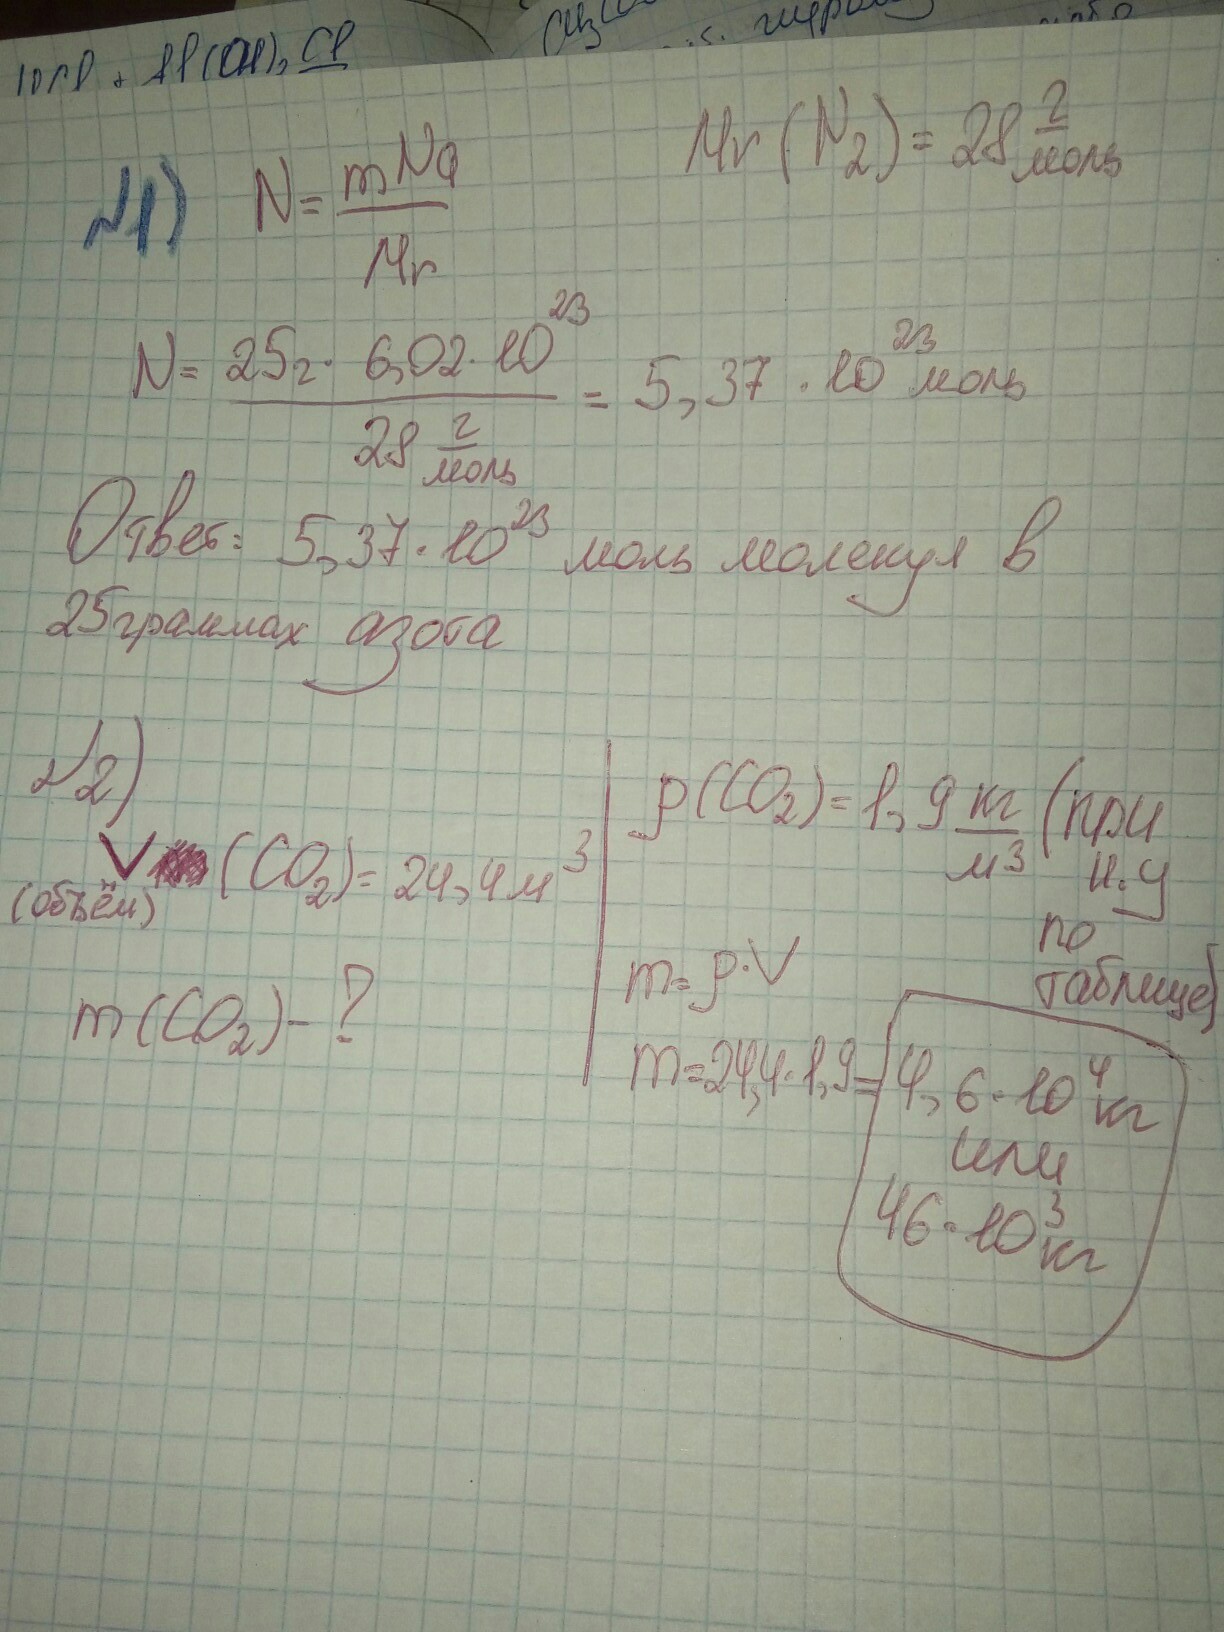 + Al(OH)₂Cl
№1) N = mNa / Mr
Mr (N₂) = 28 г/моль
N = 25г · 6,02 · 10²³ / 28 г/моль = 5,37 · 10²³ моль
Ответ: 5,37 · 10²³ моль молекул в
25 граммах азота
№2)
V (CO₂) = 24,4 м³
(объём)
m (CO₂) - ?
ρ(CO₂) = 1,9 кг/м³ (при
н.у
по
таблице)
m = ρ · V
m = 24,4 · 1,9 = 4,6 · 10⁴ кг
или
46 · 10³ кг